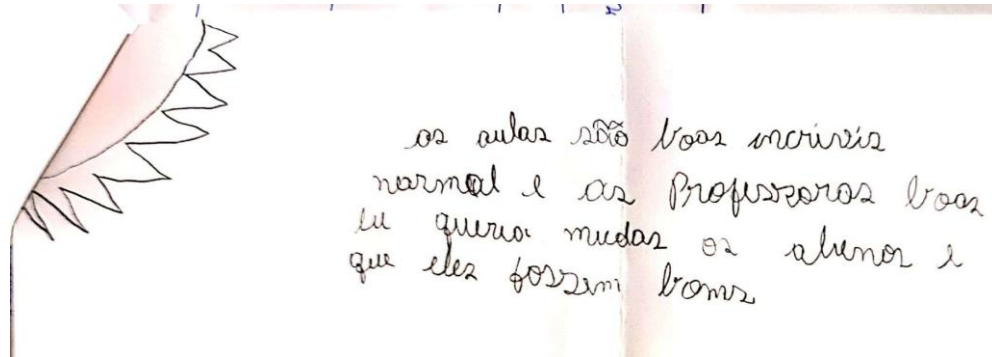 as aulas são boas incriveis
normal e as Professoras boas
eu queria mudas os alunos e
que eles fossem boms